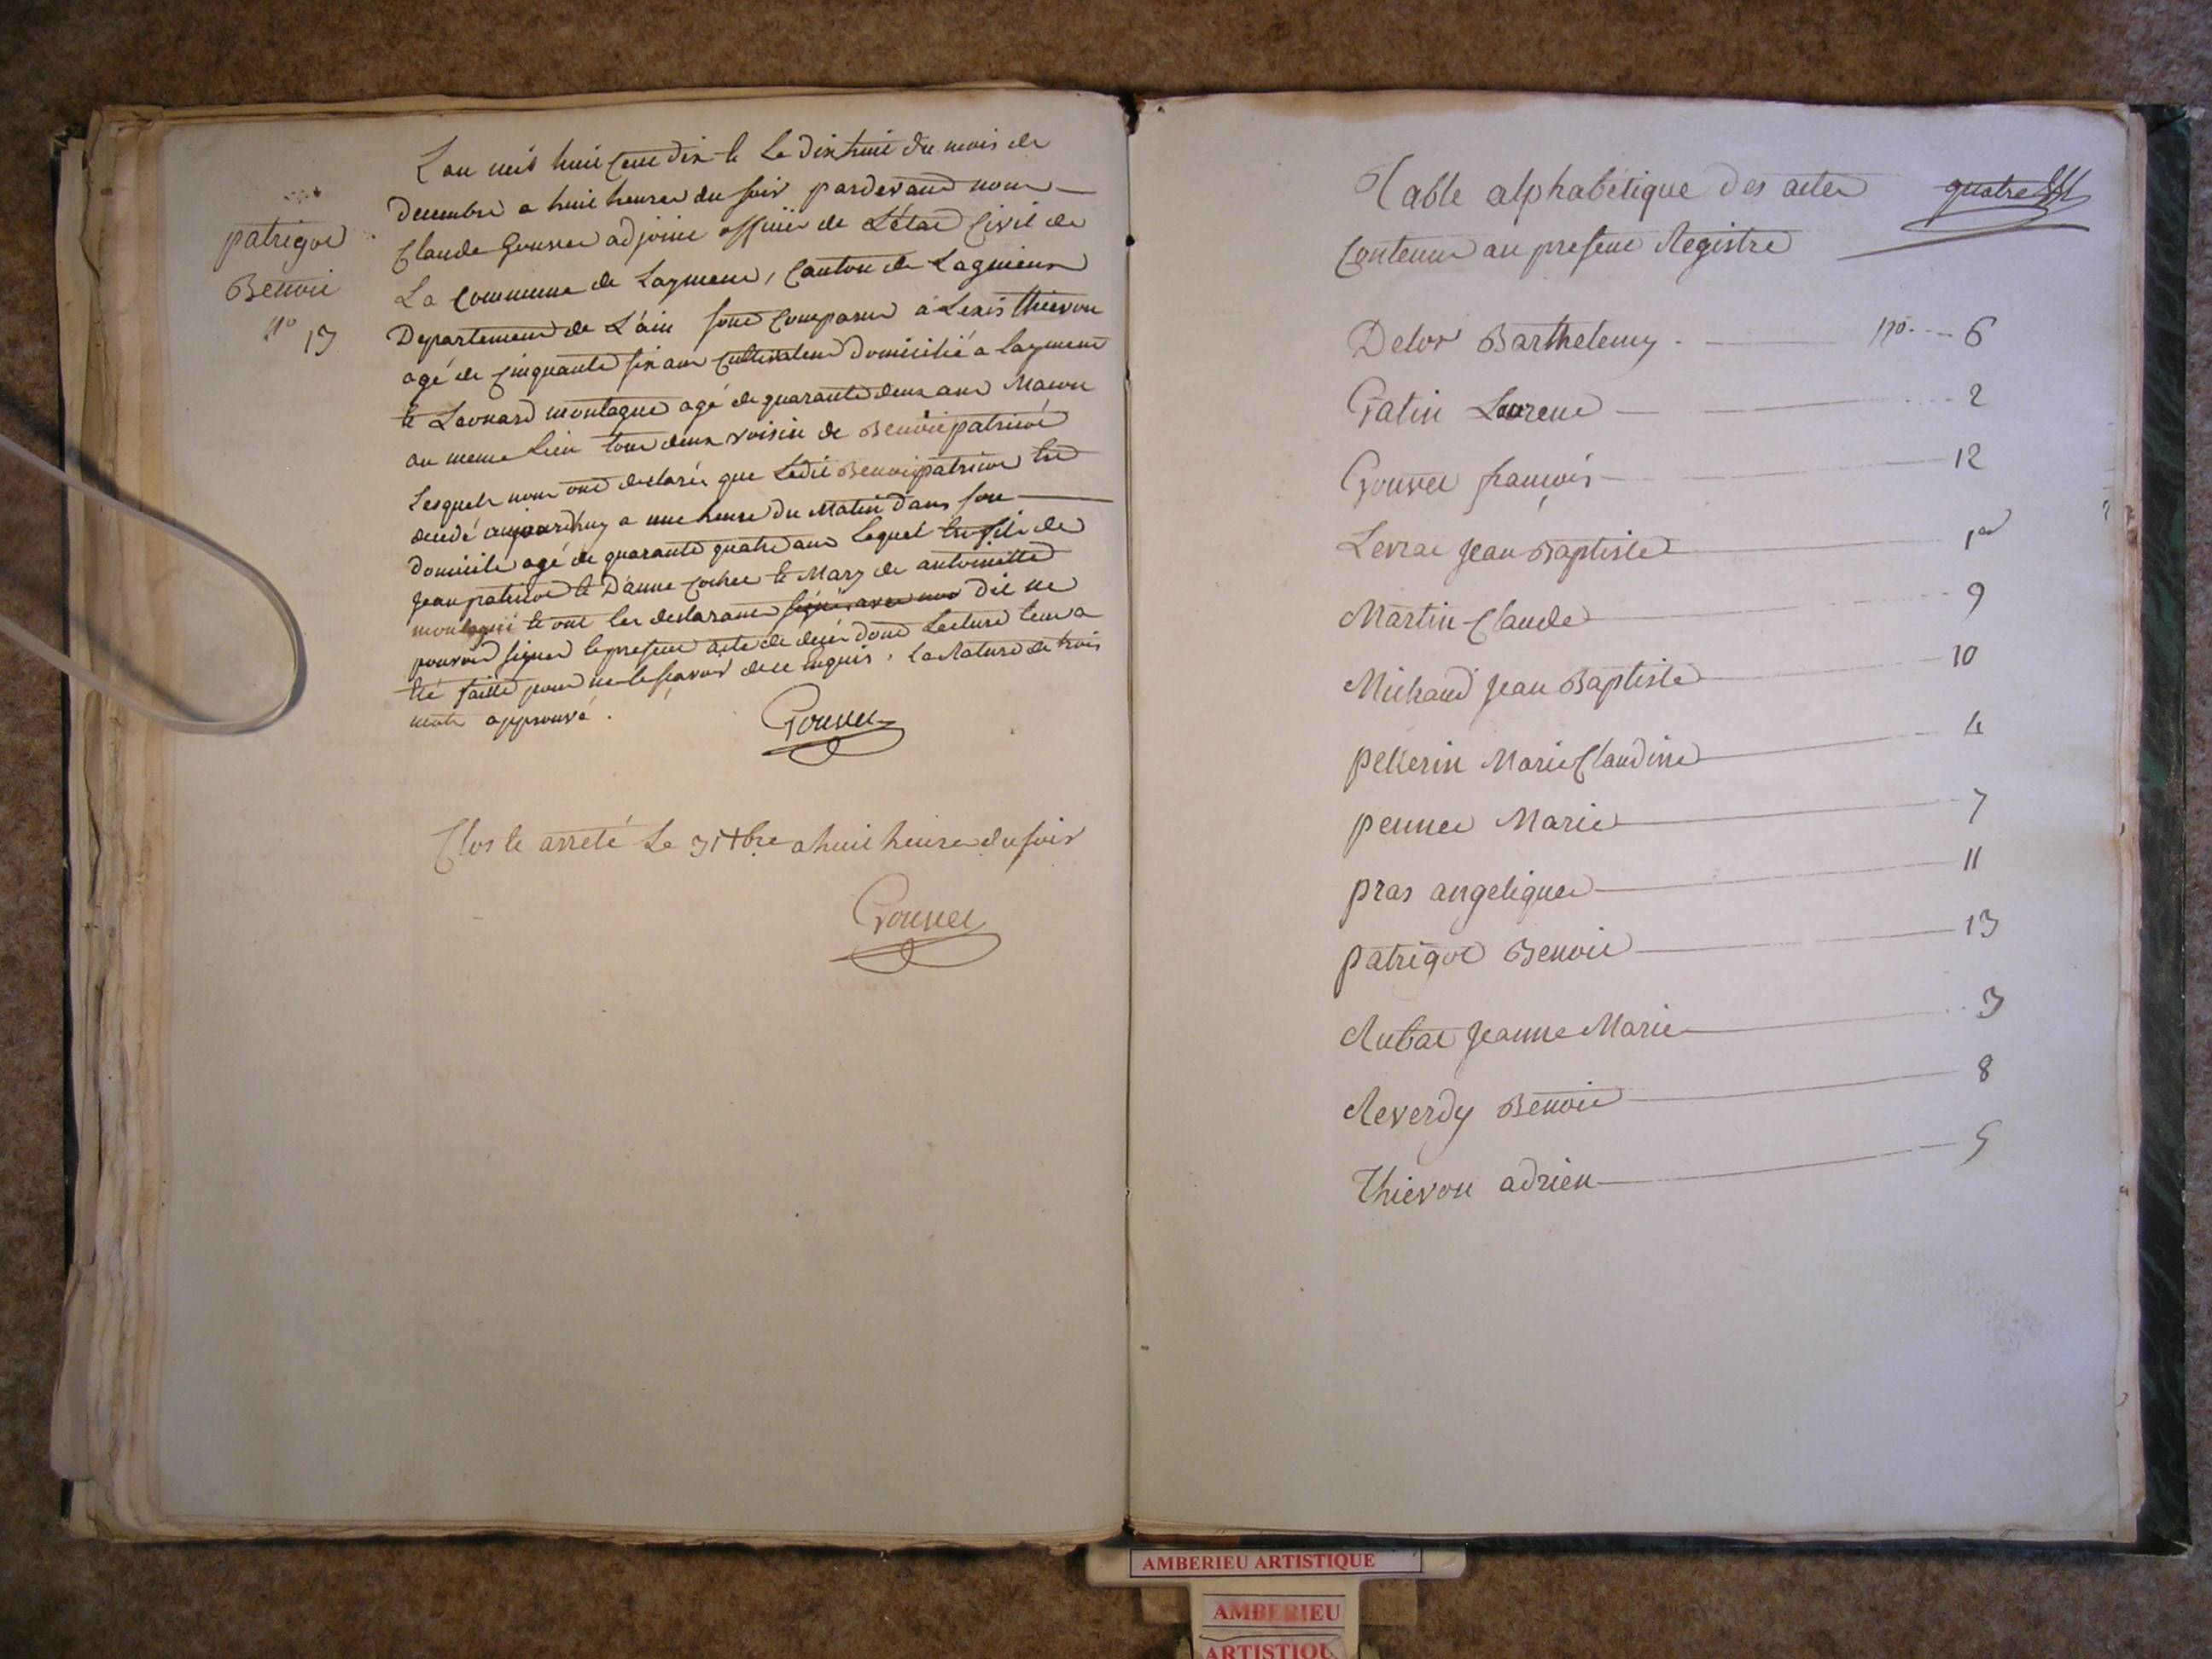 patrigot
Benoit
n° 13
L'an mil huit cent dix et le dix huit du mois de
decembre a huit heures du soir pardevant nous
Claude Gouvet adjoint officier de L'état Civil de
La Commune de Laymeut, Canton de Lagnieux
Departement de L'ain sont Comparus alexis thievon
agé de Cinquante six ans Cultivateur domicilié a laymeut
et Leonard montagne agé de quarante deux ans Macon
au meme lieu tous deux voisin de Benoit patricot
Lesquels nous ont declarés que Ledit Benoit patricot est
decedé aujourdhuy a une heure du Matin dans son
domicile agé de quarante quatre ans lequel est fils de
Jean patricot et D'anne cochet et Mary de antoinette
montagne et ont les declarants signés avec nous dit ne
pouvoir signer le present acte de décès dont Lecture leur a
été faitte pour ne le sçavoir de ce Enquis, La Rature de trois
mots approuvé.
Gouvet
Clos et arreté Le 31 xbre a huit heures du soir
Gouvet
Table alphabétique des actes
quatre
Contenus au present Registre
Delor Barthelemy n° 6
Gatin Laurent 2
Gouvet françois 12
Levrat Jean Baptiste 1er
Martin Claude 9
Michaud Jean Baptiste 10
pellerin Marie Claudine 4
pennet Marie 7
pras angelique 11
patrigot Benoit 13
Rubat Jeanne Marie 3
Reverdy Benoit 8
Thievon adrien 5
AMBERIEU ARTISTIQUE
AMBERIEU
ARTISTIQU